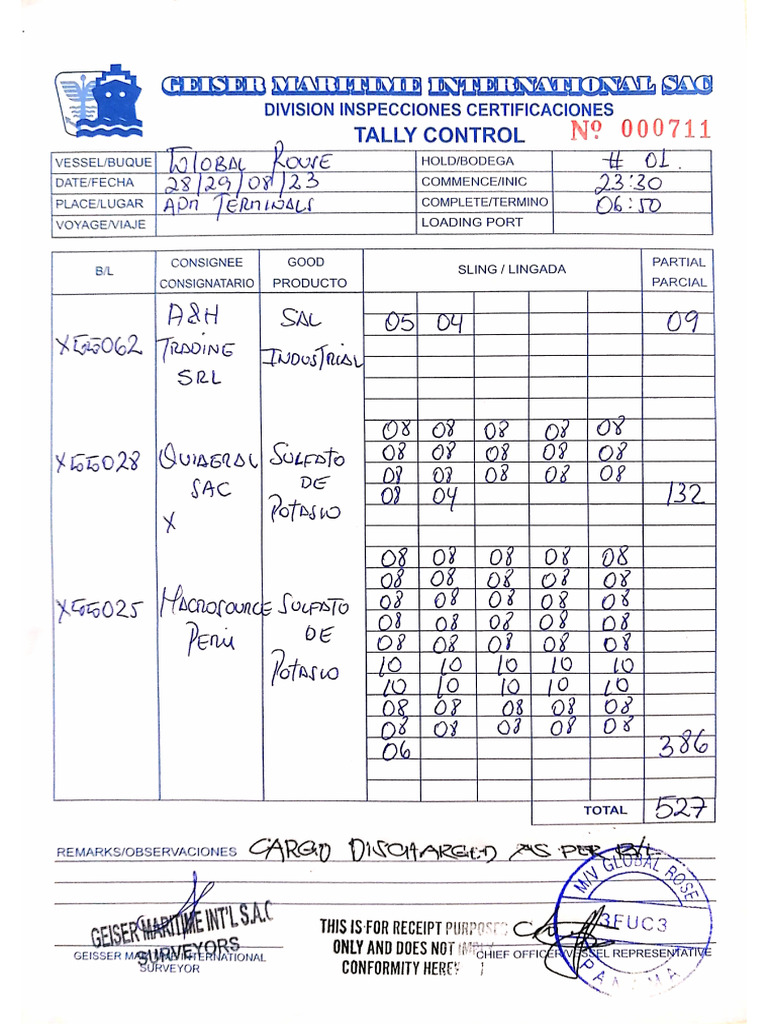 GEISER MARITIME INTERNATIONAL SAC
DIVISION INSPECCIONES CERTIFICACIONES
TALLY CONTROL Nº 000711
VESSEL/BUQUE Global Rouse HOLD/BODEGA # 01.
DATE/FECHA 28/29/08/23 COMMENCE/INIC 23:30
PLACE/LUGAR APM TERMINALS COMPLETE/TERMINO 06:50
VOYAGE/VIAJE LOADING PORT
B/L CONSIGNEE CONSIGNATARIO GOOD PRODUCTO SLING / LINGADA PARTIAL PARCIAL
X55062 A&H TRADING SRL SAL INDUSTRIAL
05 04 09
X55028 QUIAGRAL SAC X SULFATO DE POTASIO
08 08 08 08 08
08 08 08 08 08
08 08 08 08 08
08 04 132
X55025 MACROSOURCE PERÚ SULFATO DE POTASIO
08 08 08 08 08
08 08 08 08 08
08 08 08 08 08
08 08 08 08 08
08 08 08 08 08
10 10 10 10 10
10 10 10 10 10
08 08 08 08 08
08 08 08 08 08
06 386
TOTAL 527
REMARKS/OBSERVACIONES CARGO DISCHARGED AS PER B/L.
GEISER MARITIME INT'L S.A.C
SURVEYORS
GEISSER MARITIME INTERNATIONAL
SURVEYOR
THIS IS FOR RECEIPT PURPOSES
ONLY AND DOES NOT IMPLY
CONFORMITY HERE
CHIEF OFFICER/VESSEL REPRESENTATIVE
M/V GLOBAL ROSE
3FUC3
PANAMA